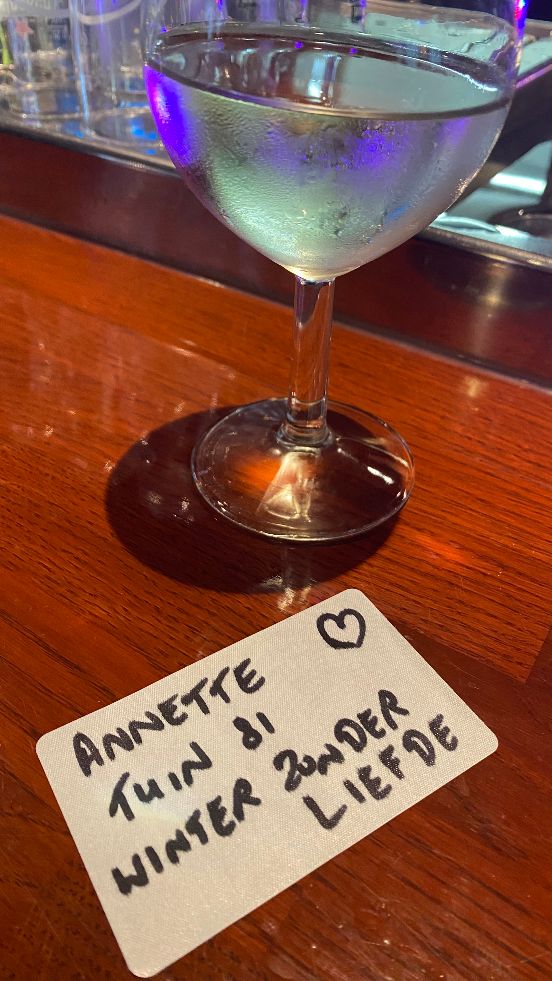 ANNETTE
TUIN 81
WINTER ZONDER
LIEFDE